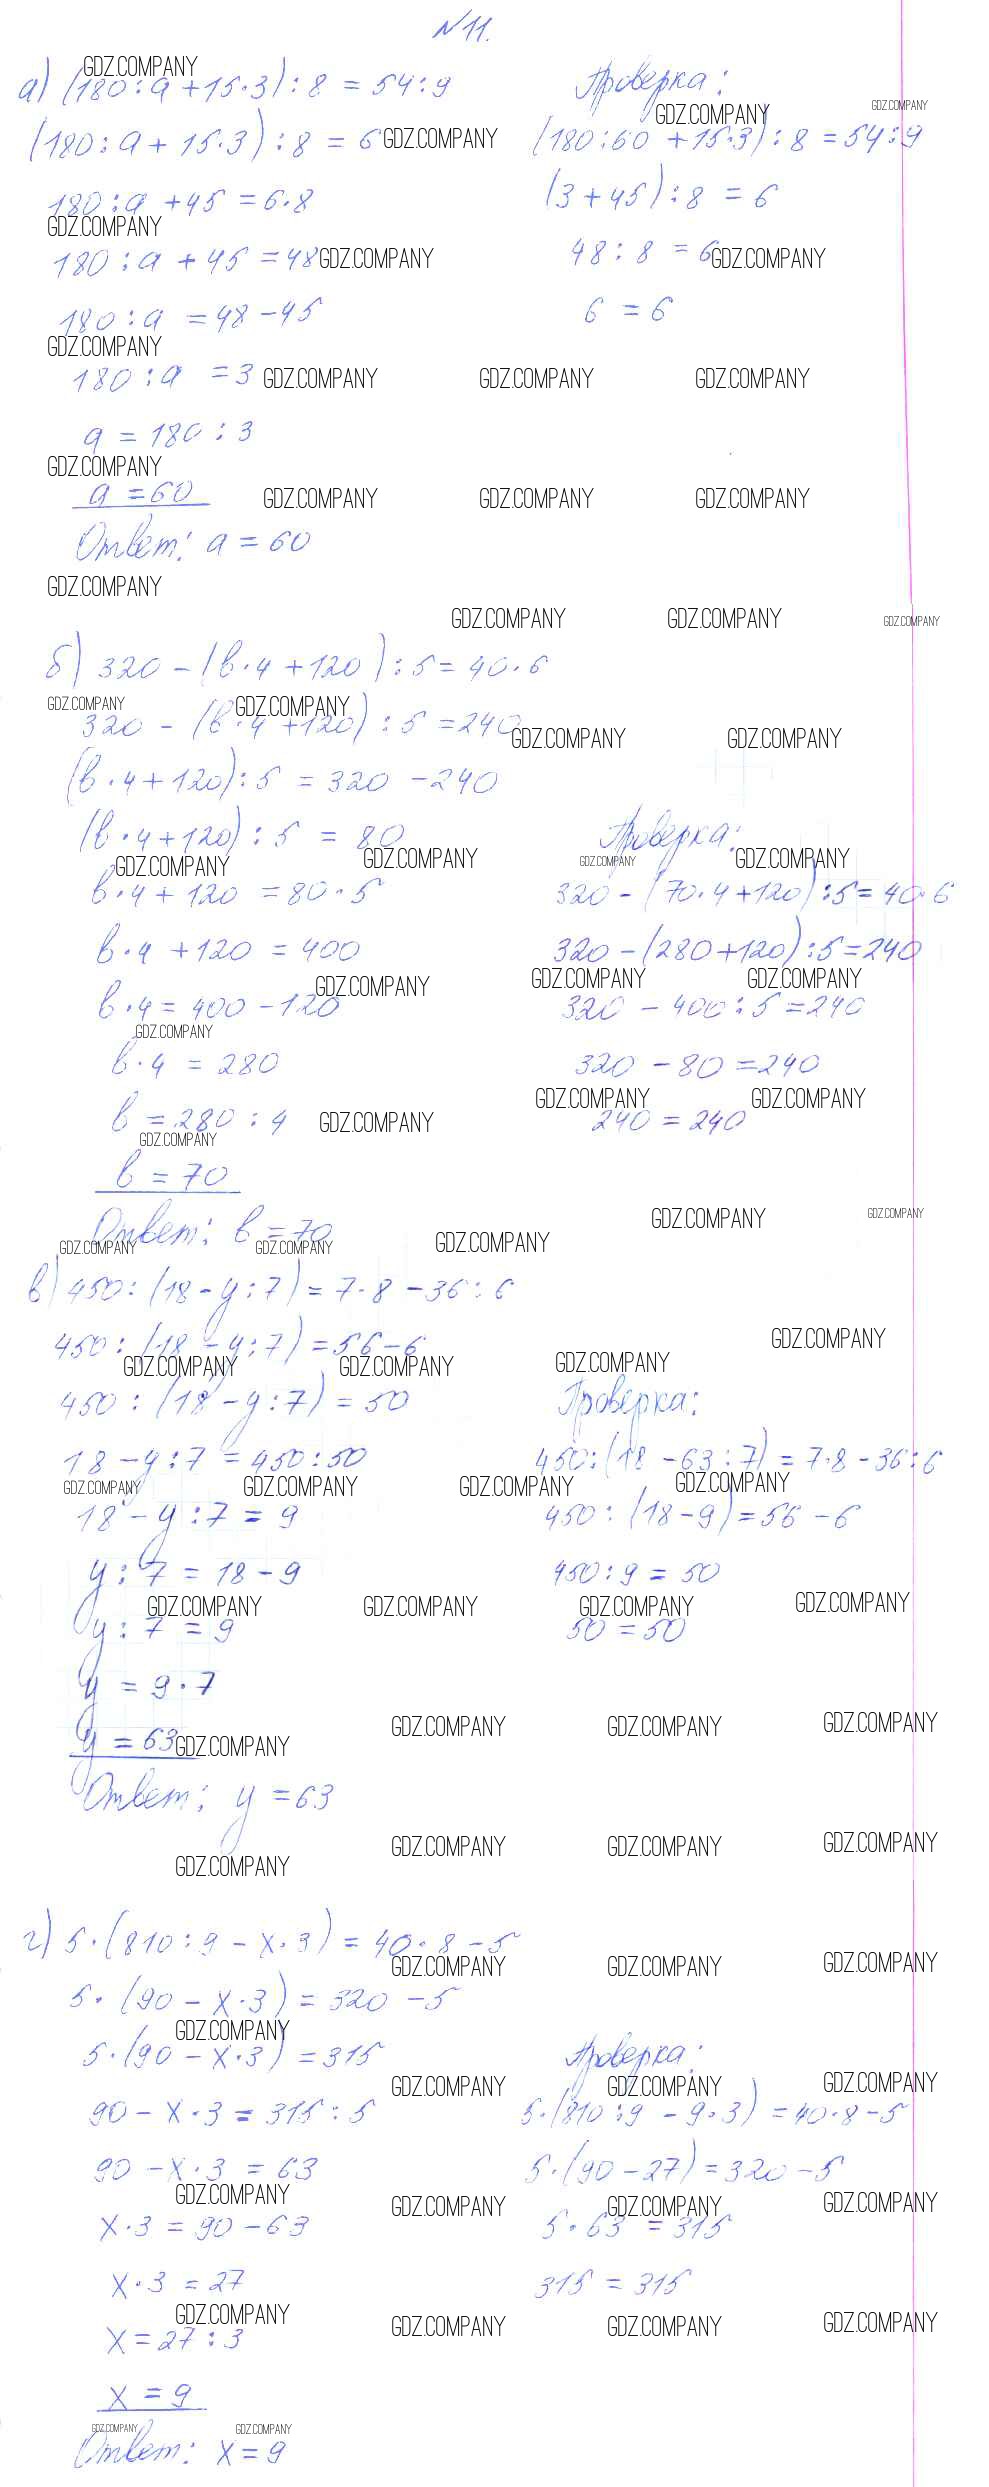 №11.
а) (180:a+15·3):8=54:9
(180:a+15·3):8=6
180:a+45=6·8
180:a+45=48
180:a=48-45
180:a=3
a=180:3
a=60
Ответ: a=60
Проверка:
(180:60+15·3):8=54:9
(3+45):8=6
48:8=6
6=6
б) 320-(b·4+120):5=40·6
320-(b·4+120):5=240
(b·4+120):5=320-240
(b·4+120):5=80
b·4+120=80·5
b·4+120=400
b·4=400-120
b·4=280
b=280:4
b=70
Ответ: b=70
Проверка:
320-(70·4+120):5=40·6
320-(280+120):5=240
320-400:5=240
320-80=240
240=240
в) 450:(18-y:7)=7·8-36:6
450:(18-y:7)=56-6
450:(18-y:7)=50
18-y:7=450:50
18-y:7=9
y:7=18-9
y:7=9
y=9·7
y=63
Ответ: y=63
Проверка:
450:(18-63:7)=7·8-36:6
450:(18-9)=56-6
450:9=50
50=50
г) 5·(810:9-x·3)=40·8-5
5·(90-x·3)=320-5
5·(90-x·3)=315
90-x·3=315:5
90-x·3=63
x·3=90-63
x·3=27
x=27:3
x=9
Ответ: x=9
Проверка:
5·(810:9-9·3)=40·8-5
5·(90-27)=320-5
5·63=315
315=315
GDZ.COMPANY